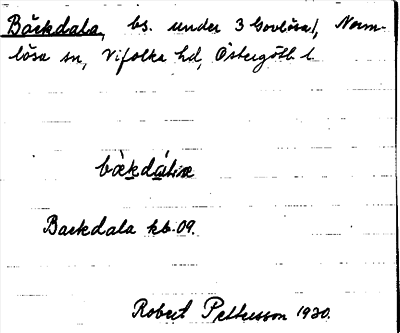 Bäckdala, bs. under 3 Govlösa, Norm-
lösa sn, Vifolka hd, Östergötl. l.
Backdala kb. 09.
Robert Pettersson 1920.